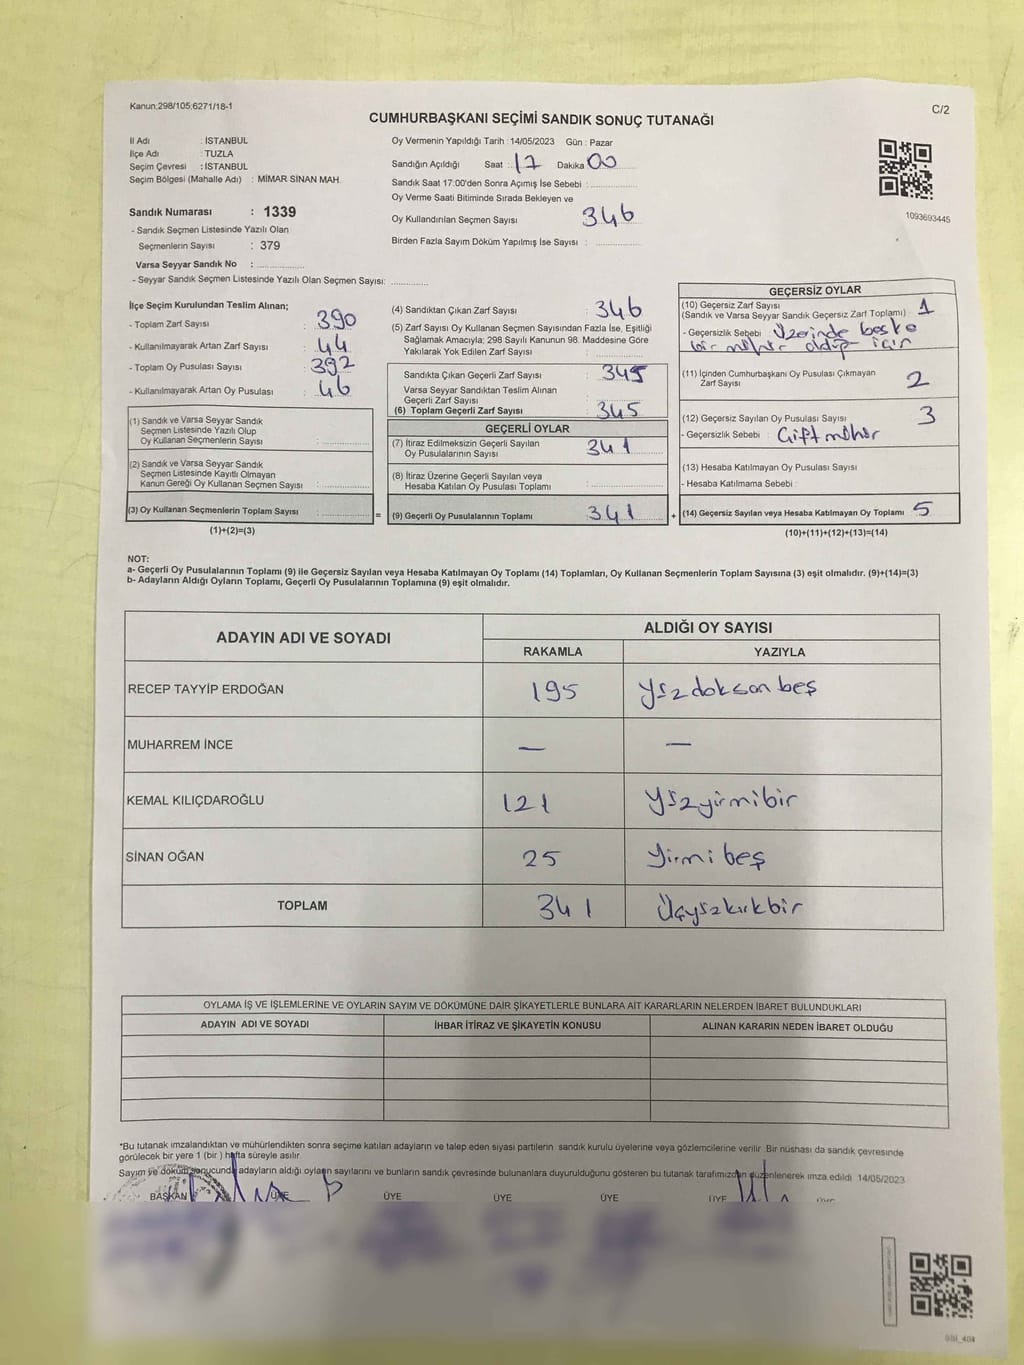 Kanun;298/105;6271/18-1
C/2
CUMHURBAŞKANI SEÇİMİ SANDIK SONUÇ TUTANAĞI
İl Adı : İSTANBUL
İlçe Adı : TUZLA
Seçim Çevresi : İSTANBUL
Seçim Bölgesi (Mahalle Adı) : MİMAR SİNAN MAH.
Oy Vermenin Yapıldığı Tarih : 14/05/2023 Gün : Pazar
Sandığın Açıldığı Saat : 17 Dakika 00
Sandık Saat 17:00'den Sonra Açımış İse Sebebi :
Oy Verme Saati Bitiminde Sırada Bekleyen ve
Oy Kullandırılan Seçmen Sayısı 346
Birden Fazla Sayım Döküm Yapılmış İse Sayısı :
1093693445
Sandık Numarası : 1339
- Sandık Seçmen Listesinde Yazılı Olan
Seçmenlerin Sayısı : 379
Varsa Seyyar Sandık No :
- Seyyar Sandık Seçmen Listesinde Yazılı Olan Seçmen Sayısı:
İlçe Seçim Kurulundan Teslim Alınan;
- Toplam Zarf Sayısı : 390
- Kullanılmayarak Artan Zarf Sayısı : 44
- Toplam Oy Pusulası Sayısı : 392
- Kullanılmayarak Artan Oy Pusulası : 46
(1) Sandık ve Varsa Seyyar Sandık
Seçmen Listesinde Yazılı Olup
Oy Kullanan Seçmenlerin Sayısı :
(2) Sandık ve Varsa Seyyar Sandık
Seçmen Listesinde Kayıtlı Olmayan
Kanun Gereği Oy Kullanan Seçmen Sayısı :
(3) Oy Kullanan Seçmenlerin Toplam Sayısı :
(1)+(2)=(3)
=
(4) Sandıktan Çıkan Zarf Sayısı : 346
(5) Zarf Sayısı Oy Kullanan Seçmen Sayısından Fazla İse, Eşitliği
Sağlamak Amacıyla; 298 Sayılı Kanunun 98. Maddesine Göre
Yakılarak Yok Edilen Zarf Sayısı :
Sandıkta Çıkan Geçerli Zarf Sayısı : 345
Varsa Seyyar Sandıktan Teslim Alınan
Geçerli Zarf Sayısı :
(6) Toplam Geçerli Zarf Sayısı : 345
GEÇERLİ OYLAR
(7) İtiraz Edilmeksizin Geçerli Sayılan
Oy Pusulalarının Sayısı : 341
(8) İtiraz Üzerine Geçerli Sayılan veya
Hesaba Katılan Oy Pusulası Toplamı :
(9) Geçerli Oy Pusulalarının Toplamı : 341
+
GEÇERSİZ OYLAR
(10) Geçersiz Zarf Sayısı : 1
(Sandık ve Varsa Seyyar Sandık Geçersiz Zarf Toplamı)
- Geçersizlik Sebebi : Üzerinde başka
bir mühür oldup için
(11) İçinden Cumhurbaşkanı Oy Pusulası Çıkmayan
Zarf Sayısı 2
(12) Geçersiz Sayılan Oy Pusulası Sayısı : 3
- Geçersizlik Sebebi : Çift mühür
(13) Hesaba Katılmayan Oy Pusulası Sayısı
- Hesaba Katılmama Sebebi :
(14) Geçersiz Sayılan veya Hesaba Katılmayan Oy Toplamı : 5
(10)+(11)+(12)+(13)=(14)
NOT:
a- Geçerli Oy Pusulalarının Toplamı (9) ile Geçersiz Sayılan veya Hesaba Katılmayan Oy Toplamı (14) Toplamları, Oy Kullanan Seçmenlerin Toplam Sayısına (3) eşit olmalıdır. (9)+(14)=(3)
b- Adayların Aldığı Oyların Toplamı, Geçerli Oy Pusulalarının Toplamına (9) eşit olmalıdır.
ADAYIN ADI VE SOYADI ALDIĞI OY SAYISI
RAKAMLA YAZIYLA
RECEP TAYYİP ERDOĞAN 195 Yüzdoksan beş
MUHARREM İNCE — —
KEMAL KILIÇDAROĞLU 121 Yüzyirmibir
SİNAN OĞAN 25 Yirmi beş
TOPLAM 341 Üçyüzkırkbir
OYLAMA İŞ VE İŞLEMLERİNE VE OYLARIN SAYIM VE DÖKÜMÜNE DAİR ŞİKAYETLERLE BUNLARA AİT KARARLARIN NELERDEN İBARET BULUNDUKLARI
ADAYIN ADI VE SOYADI İHBAR İTİRAZ VE ŞİKAYETİN KONUSU ALINAN KARARIN NEDEN İBARET OLDUĞU
*Bu tutanak imzalandıktan ve mühürlendikten sonra seçime katılan adayların ve talep eden siyasi partilerin sandık kurulu üyelerine veya gözlemcilerine verilir. Bir nüshası da sandık çevresinde
görülecek bir yere 1 (bir ) hafta süreyle asılır.
Sayım ve döküm sonucunda adayların aldığı oyların sayılarını ve bunların sandık çevresinde bulunanlara duyurulduğunu gösteren bu tutanak tarafımızdan düzenlenerek imza edildi 14/05/2023
BAŞKAN ÜYE ÜYE ÜYE ÜYE ÜYE ÜYE